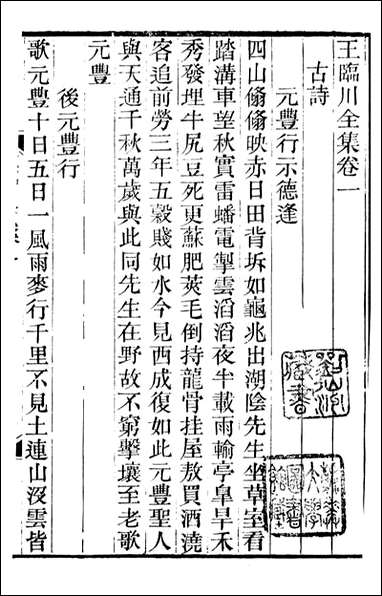 王臨川全集卷一
古詩
元豐行示德逢
四山翛翛映赤日田背坼如龜兆出湖陰先生坐草室看
踏溝車望秋實雷蟠電掣雲滔滔夜半載雨輸亭皐旱禾
秀發埋牛尻豆死更蘇肥莢毛倒持龍骨挂屋敖買酒澆
客追前勞三年五穀賤如水今見西成復如此元豐聖人
與天通千秋萬歲與此同先生在野故不窮擊壤至老歌
元豐
後元豐行
歌元豐十日五日一風雨麥行千里不見土連山沒雲皆